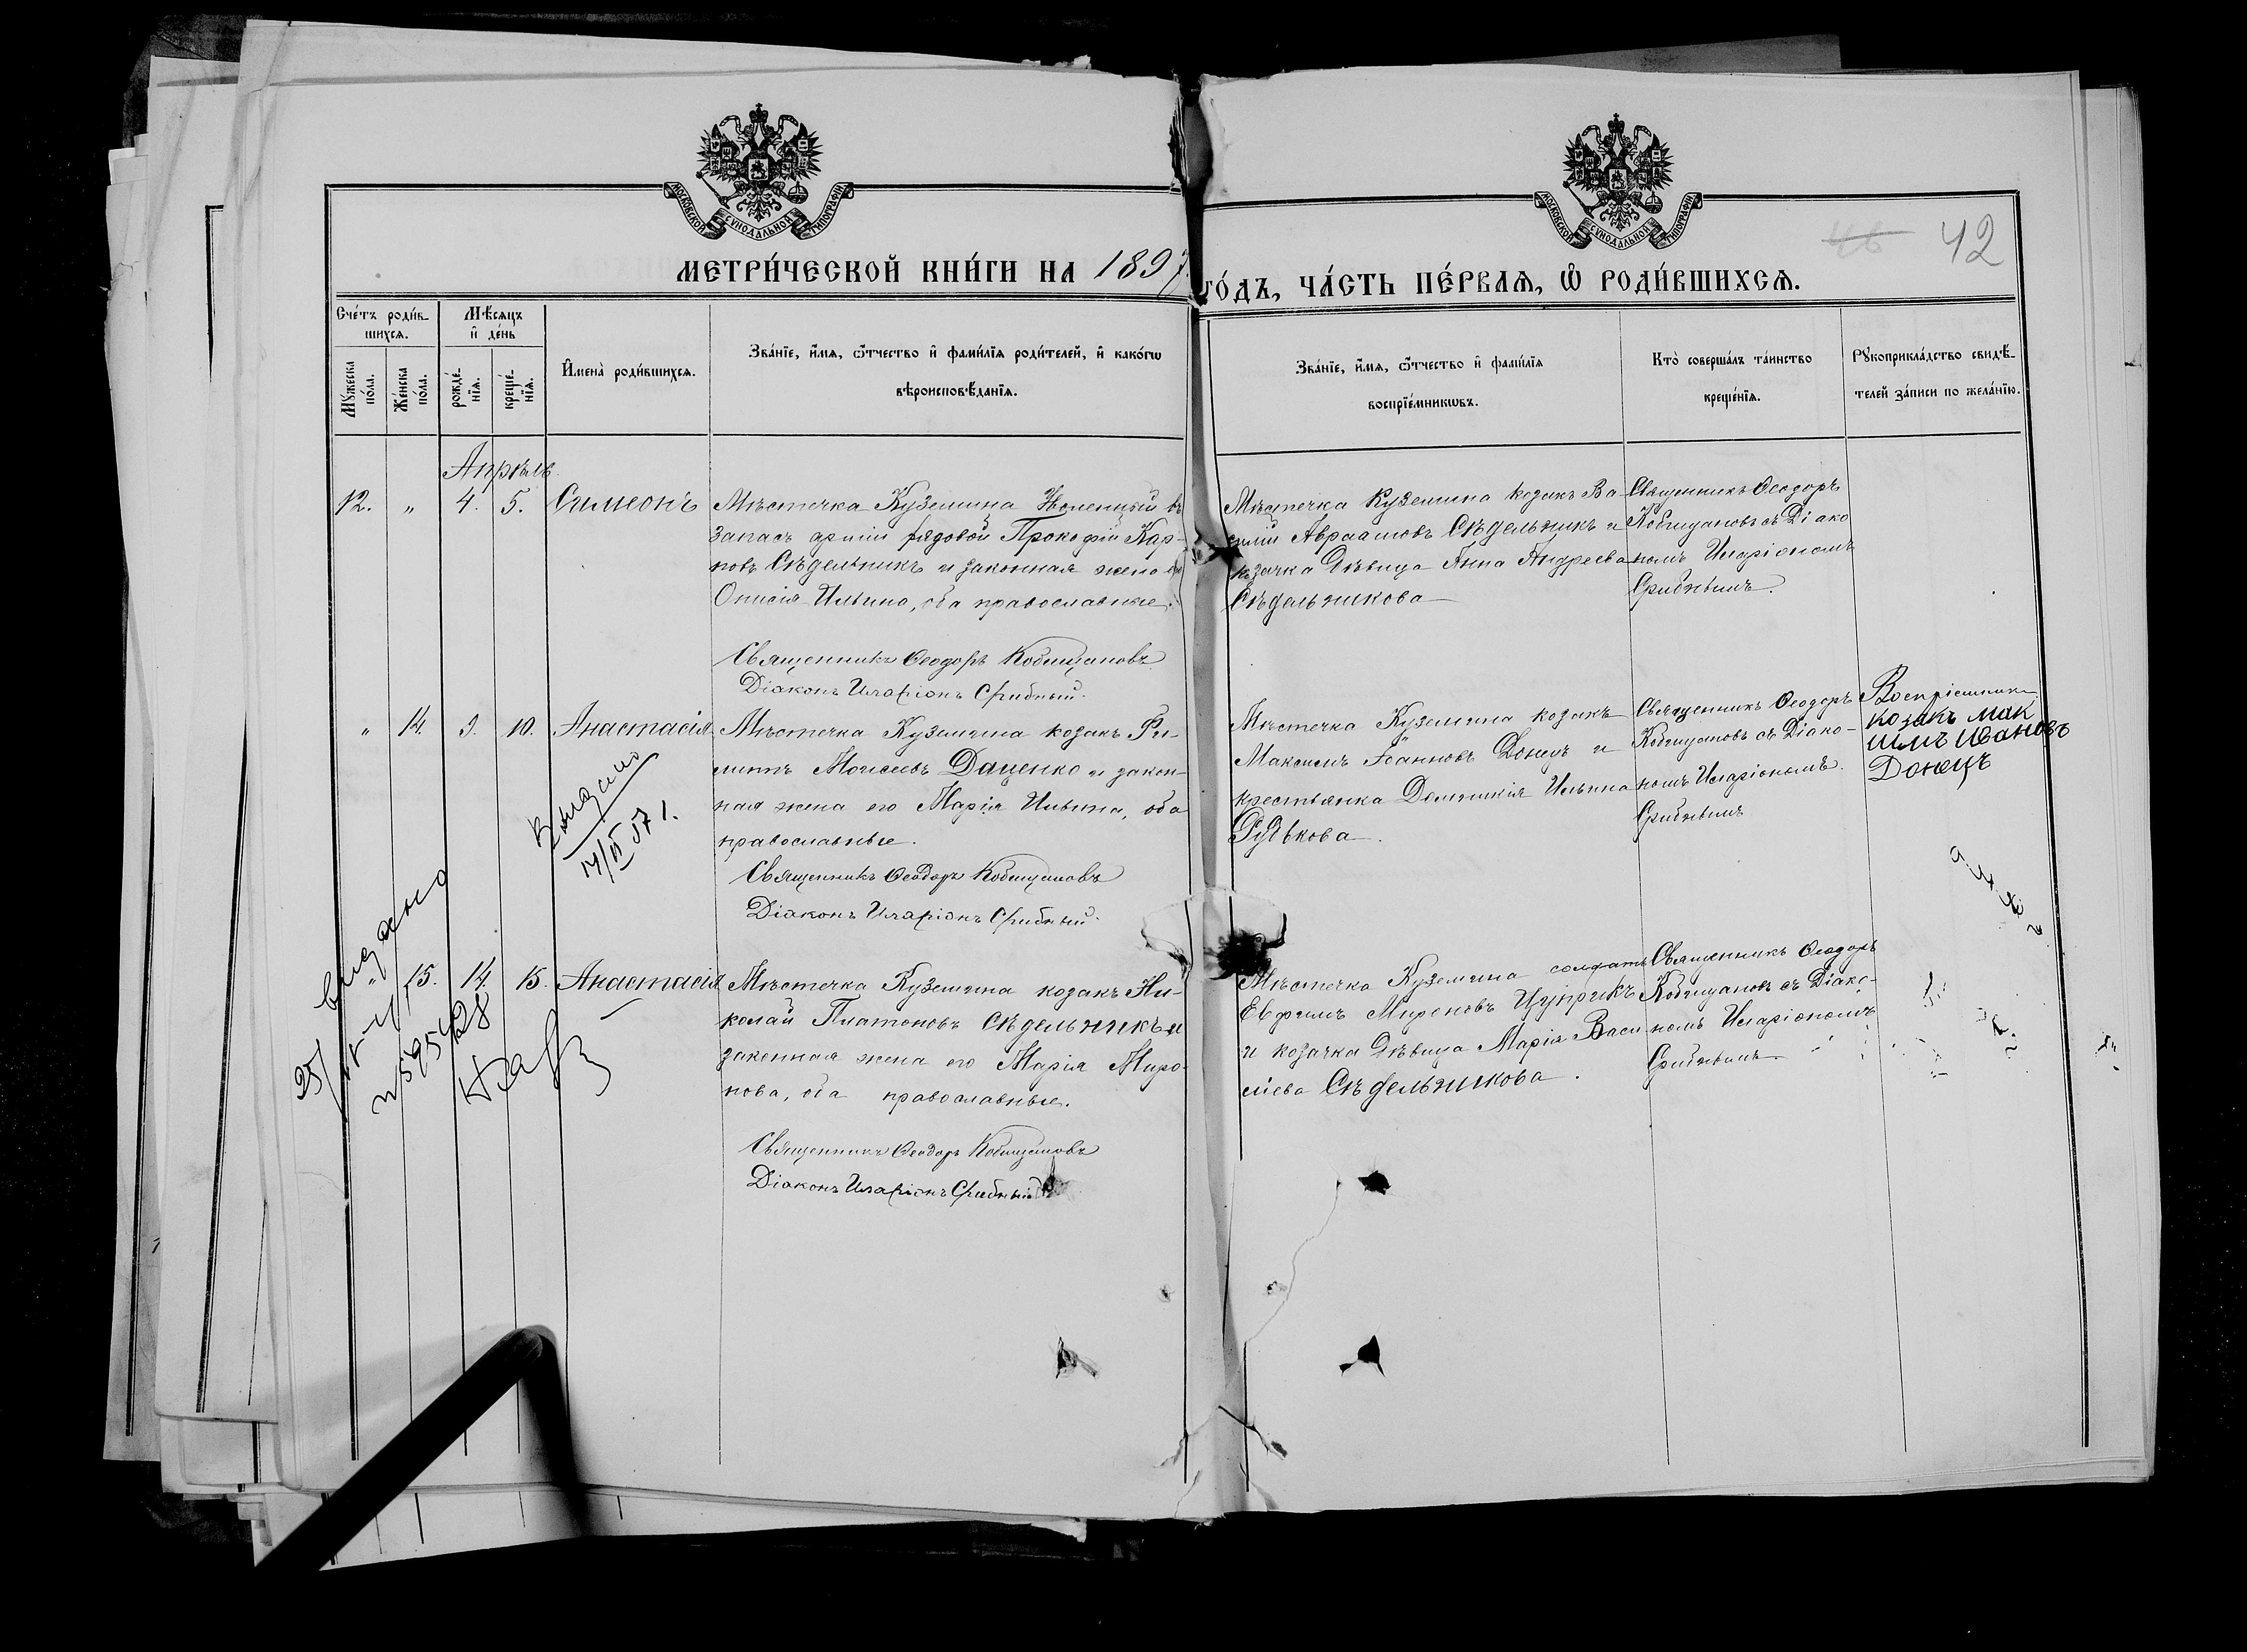 МОСКОВСКОЙ СУНОДАЛЬНОЙ ТИПОГРАФІИ
МОСКОВСКОЙ СУНОДАЛЬНОЙ ТИПОГРАФІИ
42
МЕТРИ́ЧЕСКОЙ КНИ́ГИ НА 1897
го́дъ, ча́сть пе́рваѧ, ѡ҆ роди́вшихсѧ.
Сче́тъ роди́в-
шихсѧ.
Мꙋ́жеска по́ла.
Же́нска по́ла.
Мѣ́сѧцъ
и҆ де́нь
рожде́-
нїѧ.
креще́-
нїѧ.
И҆мена̀ роди́вшихсѧ.
Зва́нїе, и҆́мѧ, ѻ҆́тчество и҆ фами́лїѧ роди́телей, и҆ како́гѡ
вѣроисповѣ́данїѧ.
Зва́нїе, и҆́мѧ, ѻ҆́тчество и҆ фами́лїѧ
воспрїе́мникѡвъ.
Кто̀ соверша́лъ та́инство
креще́нїѧ.
Рꙋкоприкла́дство свидѣ́-
телей за́писи по жела́нїю.
Апрѣль
12. " 4. 5. Симеонъ
Мѣстечка Куземина въ
запасъ арміи рядовой Прокофій Кар-
повъ Сѣдельникъ и законная жена его
Ильина, оба православные.
Священникъ Ѳеодоръ Кобищановъ
Діаконъ Иларіонъ Срибный.
Мѣстечка Куземина козакъ Ва-
силій Авраамовъ Сѣдельникъ и
козачка дѣвица Анна Андреева
Сѣдельникова
Священникъ Ѳеодоръ
Кобищановъ съ Діако
номъ Иларіономъ
Срибнымъ.
" 14. 9. 10. Анастасія
Мѣстечка Куземина козакъ Фи-
липпъ Моисеевъ Даценко и закон-
ная жена его Марія Ильина, оба
православные.
Священникъ Ѳеодоръ Кобищановъ
Діаконъ Иларіонъ Срибный.
Мѣстечка Куземина козакъ
Максимъ Іоанновъ Донецъ и
крестьянка Домникія Ильина
Рудькова.
Священникъ Ѳеодоръ
Кобищановъ съ Діако-
номъ Иларіономъ
Срибнымъ
Воспріемникъ
козакъ Мак
симъ Ивановъ
Донецъ
Видано
14/II 57 г.
" 15. 14. 15. Анастасія
Мѣстечка Куземина козакъ Ни-
колай Платоновъ Сѣдельникъ и
законная жена его Марія Миро-
нова, оба православные.
Священникъ Ѳеодоръ Кобищановъ
Діаконъ Иларіонъ Срибный
Мѣстечка Куземина солдатъ
Евфимъ Мироновъ Цуприкъ
и козачка дѣвица Марія Васи
ліева Сѣдельникова.
Священникъ Ѳеодоръ
Кобищановъ съ Діако-
номъ Иларіономъ
Срибнымъ
видано